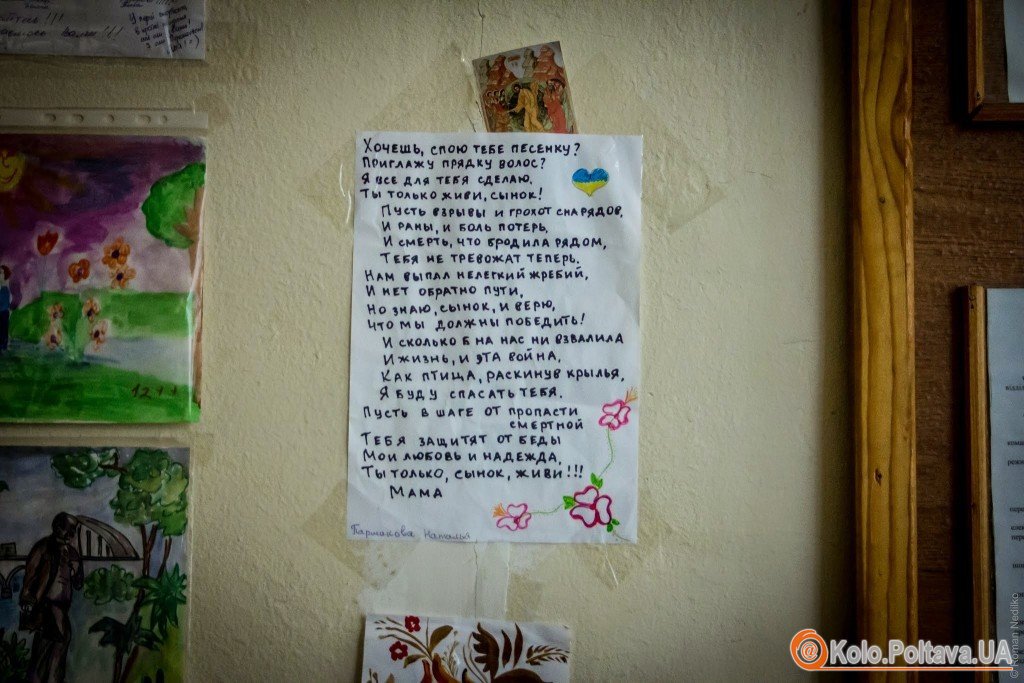 Хочешь, спою тебе песенку?
Приглажу прядку волос?
Я все для тебя сделаю.
Ты только живи, сынок!
Пусть взрывы и грохот снарядов,
И раны, и боль потерь,
И смерть, что бродила рядом,
Тебя не тревожат теперь.
Нам выпал нелегкий жребий,
И нет обратно пути,
Но знаю, сынок, и верю,
Что мы должны победить!
И сколько б на нас ни взвалила
И жизнь, и эта война,
Как птица, раскинув крылья,
Я буду спасать тебя.
Пусть в шаге от пропасти
смертной
Тебя защитят от беды
Мои любовь и надежда,
Ты только, сынок, живи!!!
Мама
Паршакова Наталья
@ Kolo.Poltava.UA
© Roman Nedilko